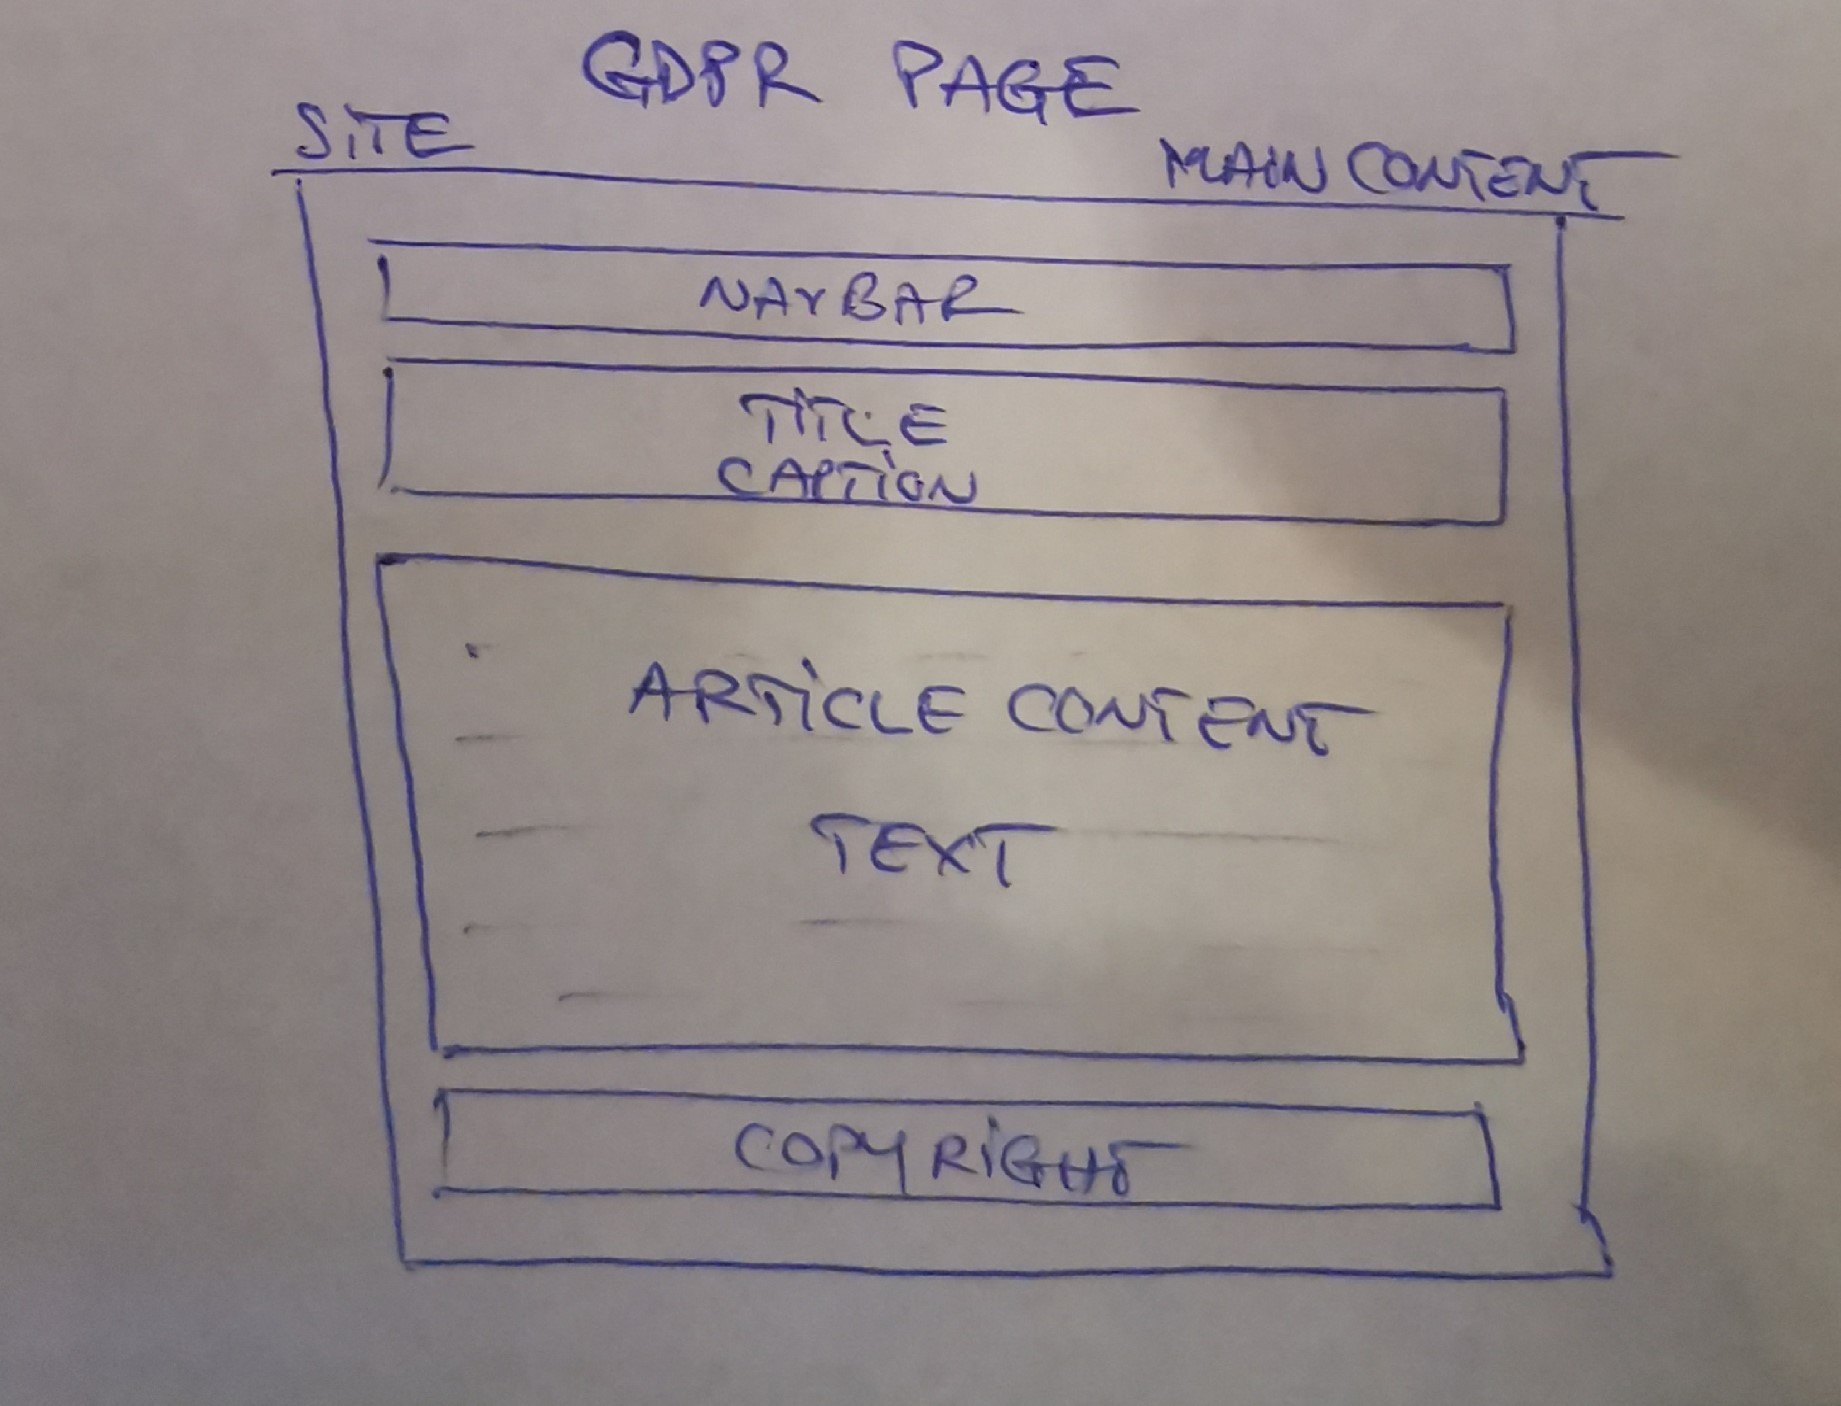 GDPR PAGE
SITE
MAIN CONTENT
NAVBAR
TITLE
CAPTION
ARTICLE CONTENT
TEXT
COPYRIGHT